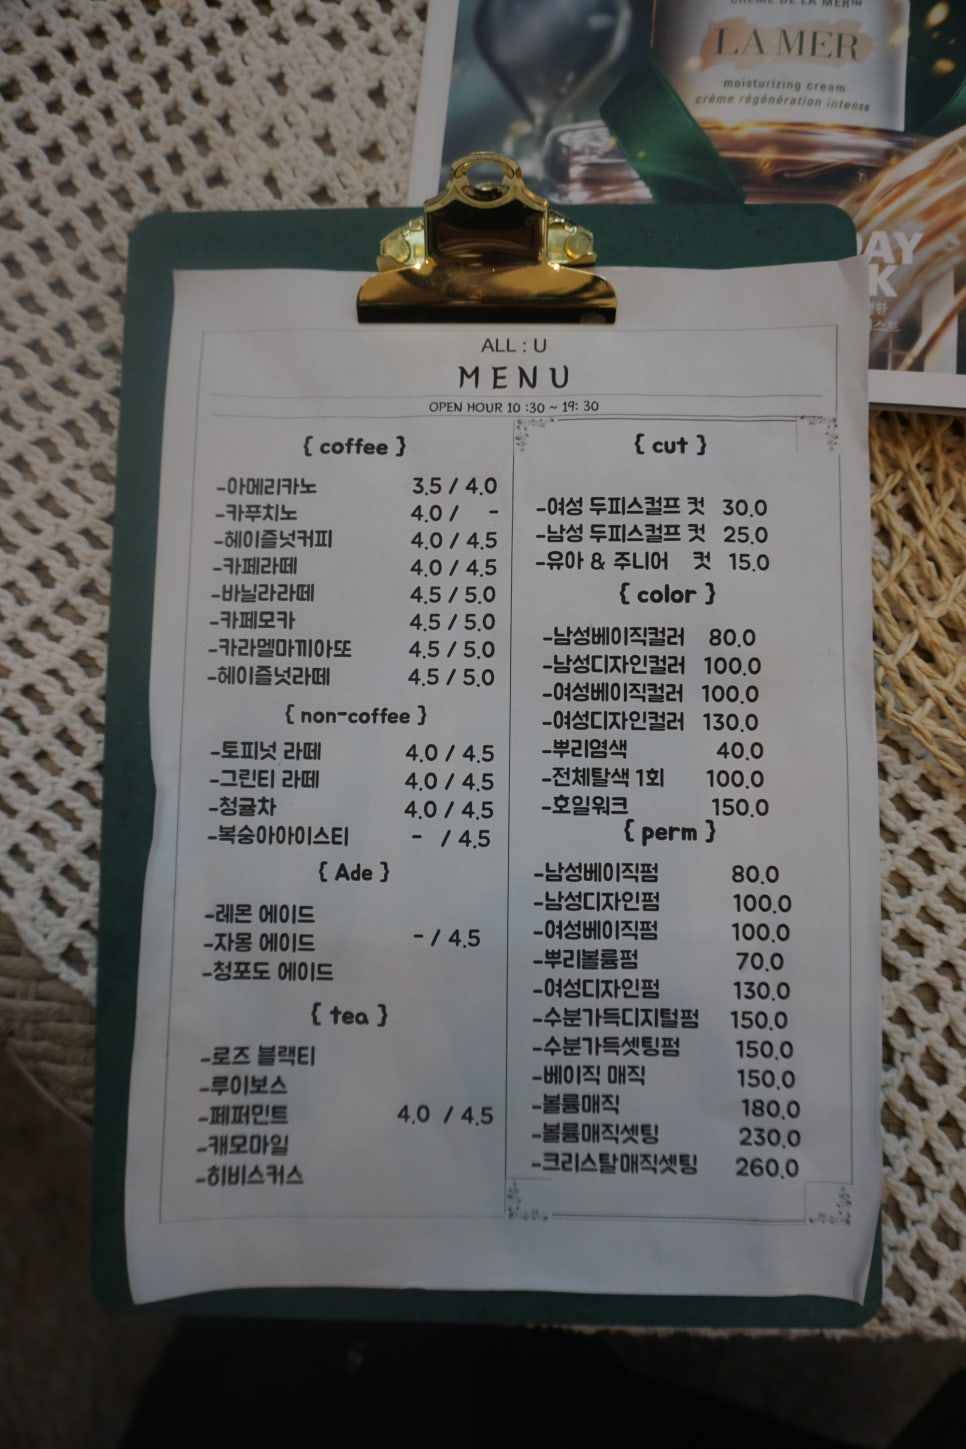 CRÈME DE LA MER™
LA MER
moisturizing cream
crème régénération intense
DAY
K
ALL : U
MENU
OPEN HOUR 10 :30 ~ 19: 30
{ coffee }
-아메리카노 3.5 / 4.0
-카푸치노 4.0 / -
-헤이즐넛커피 4.0 / 4.5
-카페라떼 4.0 / 4.5
-바닐라라떼 4.5 / 5.0
-카페모카 4.5 / 5.0
-카라멜마끼아또 4.5 / 5.0
-헤이즐넛라떼 4.5 / 5.0
{ non-coffee }
-토피넛 라떼 4.0 / 4.5
-그린티 라떼 4.0 / 4.5
-청귤차 4.0 / 4.5
-복숭아아이스티 - / 4.5
{ Ade }
-레몬 에이드
-자몽 에이드 - / 4.5
-청포도 에이드
{ tea }
-로즈 블랙티
-루이보스
-페퍼민트 4.0 / 4.5
-캐모마일
-히비스커스
{ cut }
-여성 두피스컬프 컷 30.0
-남성 두피스컬프 컷 25.0
-유아 & 주니어 컷 15.0
{ color }
-남성베이직컬러 80.0
-남성디자인컬러 100.0
-여성베이직컬러 100.0
-여성디자인컬러 130.0
-뿌리염색 40.0
-전체탈색 1회 100.0
-호일워크 150.0
{ perm }
-남성베이직펌 80.0
-남성디자인펌 100.0
-여성베이직펌 100.0
-뿌리볼륨펌 70.0
-여성디자인펌 130.0
-수분가득디지털펌 150.0
-수분가득셋팅펌 150.0
-베이직 매직 150.0
-볼륨매직 180.0
-볼륨매직셋팅 230.0
-크리스탈매직셋팅 260.0